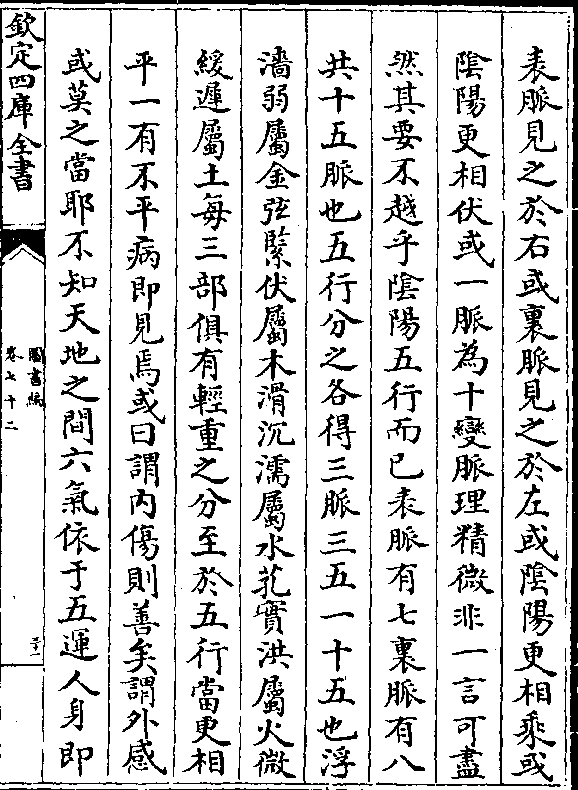 表脈見之於右或裏脈見之於左或陰陽更相乘或
陰陽更相伏或一脈為十變脈理精微非一言可盡
然其要不越乎陰陽五行而已表脈有七裏脈有八
共十五脈也五行分之各得三脈三五一十五也浮
濇弱屬金弦緊伏屬木滑沉濡屬水芤實洪屬火微
緩遲屬土每三部俱有輕重之分至於五行當更相
平一有不平病即見焉或曰謂內傷則善矣謂外感
或莫之當耶不知天地之間六氣依于五運人身即
欽定四庫全書
圖書編
卷七十二
二十一